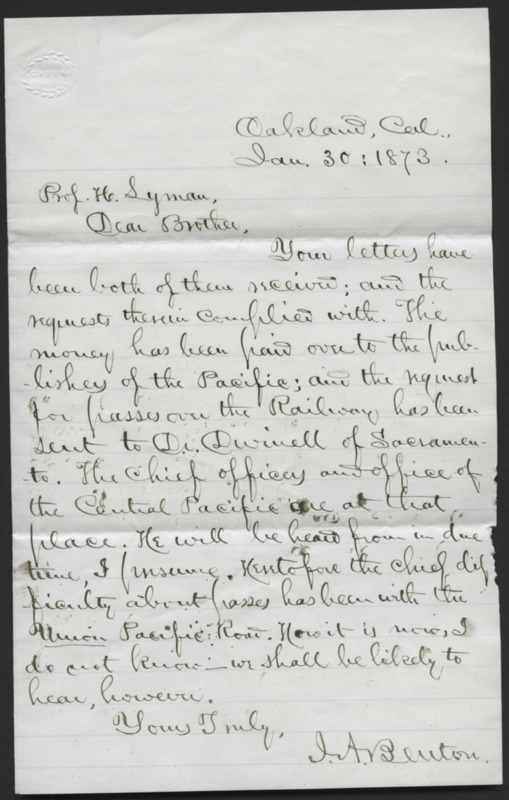 Oakland, Cal.,
Jan. 30: 1873.
Prof. H. Lyman,
Dear Brother,
Your letters have
been both of them received; and the
requests therein complied with. The
money has been paid over to the pub-
-lishers of the Pacific; and the request
for passes over the Railway has been
sent to Dr. Dwinell of Sacramen-
-to. The chief officers and office of
the Central Pacific are at that
place. He will be heard from in due
time, I presume. Heretofore the chief dif
ficulty about passes has been with the
Union Pacific Road. How it is now, I
do not know — we shall be likely to
hear, however.
Yours Truly,
J. A. Benton.